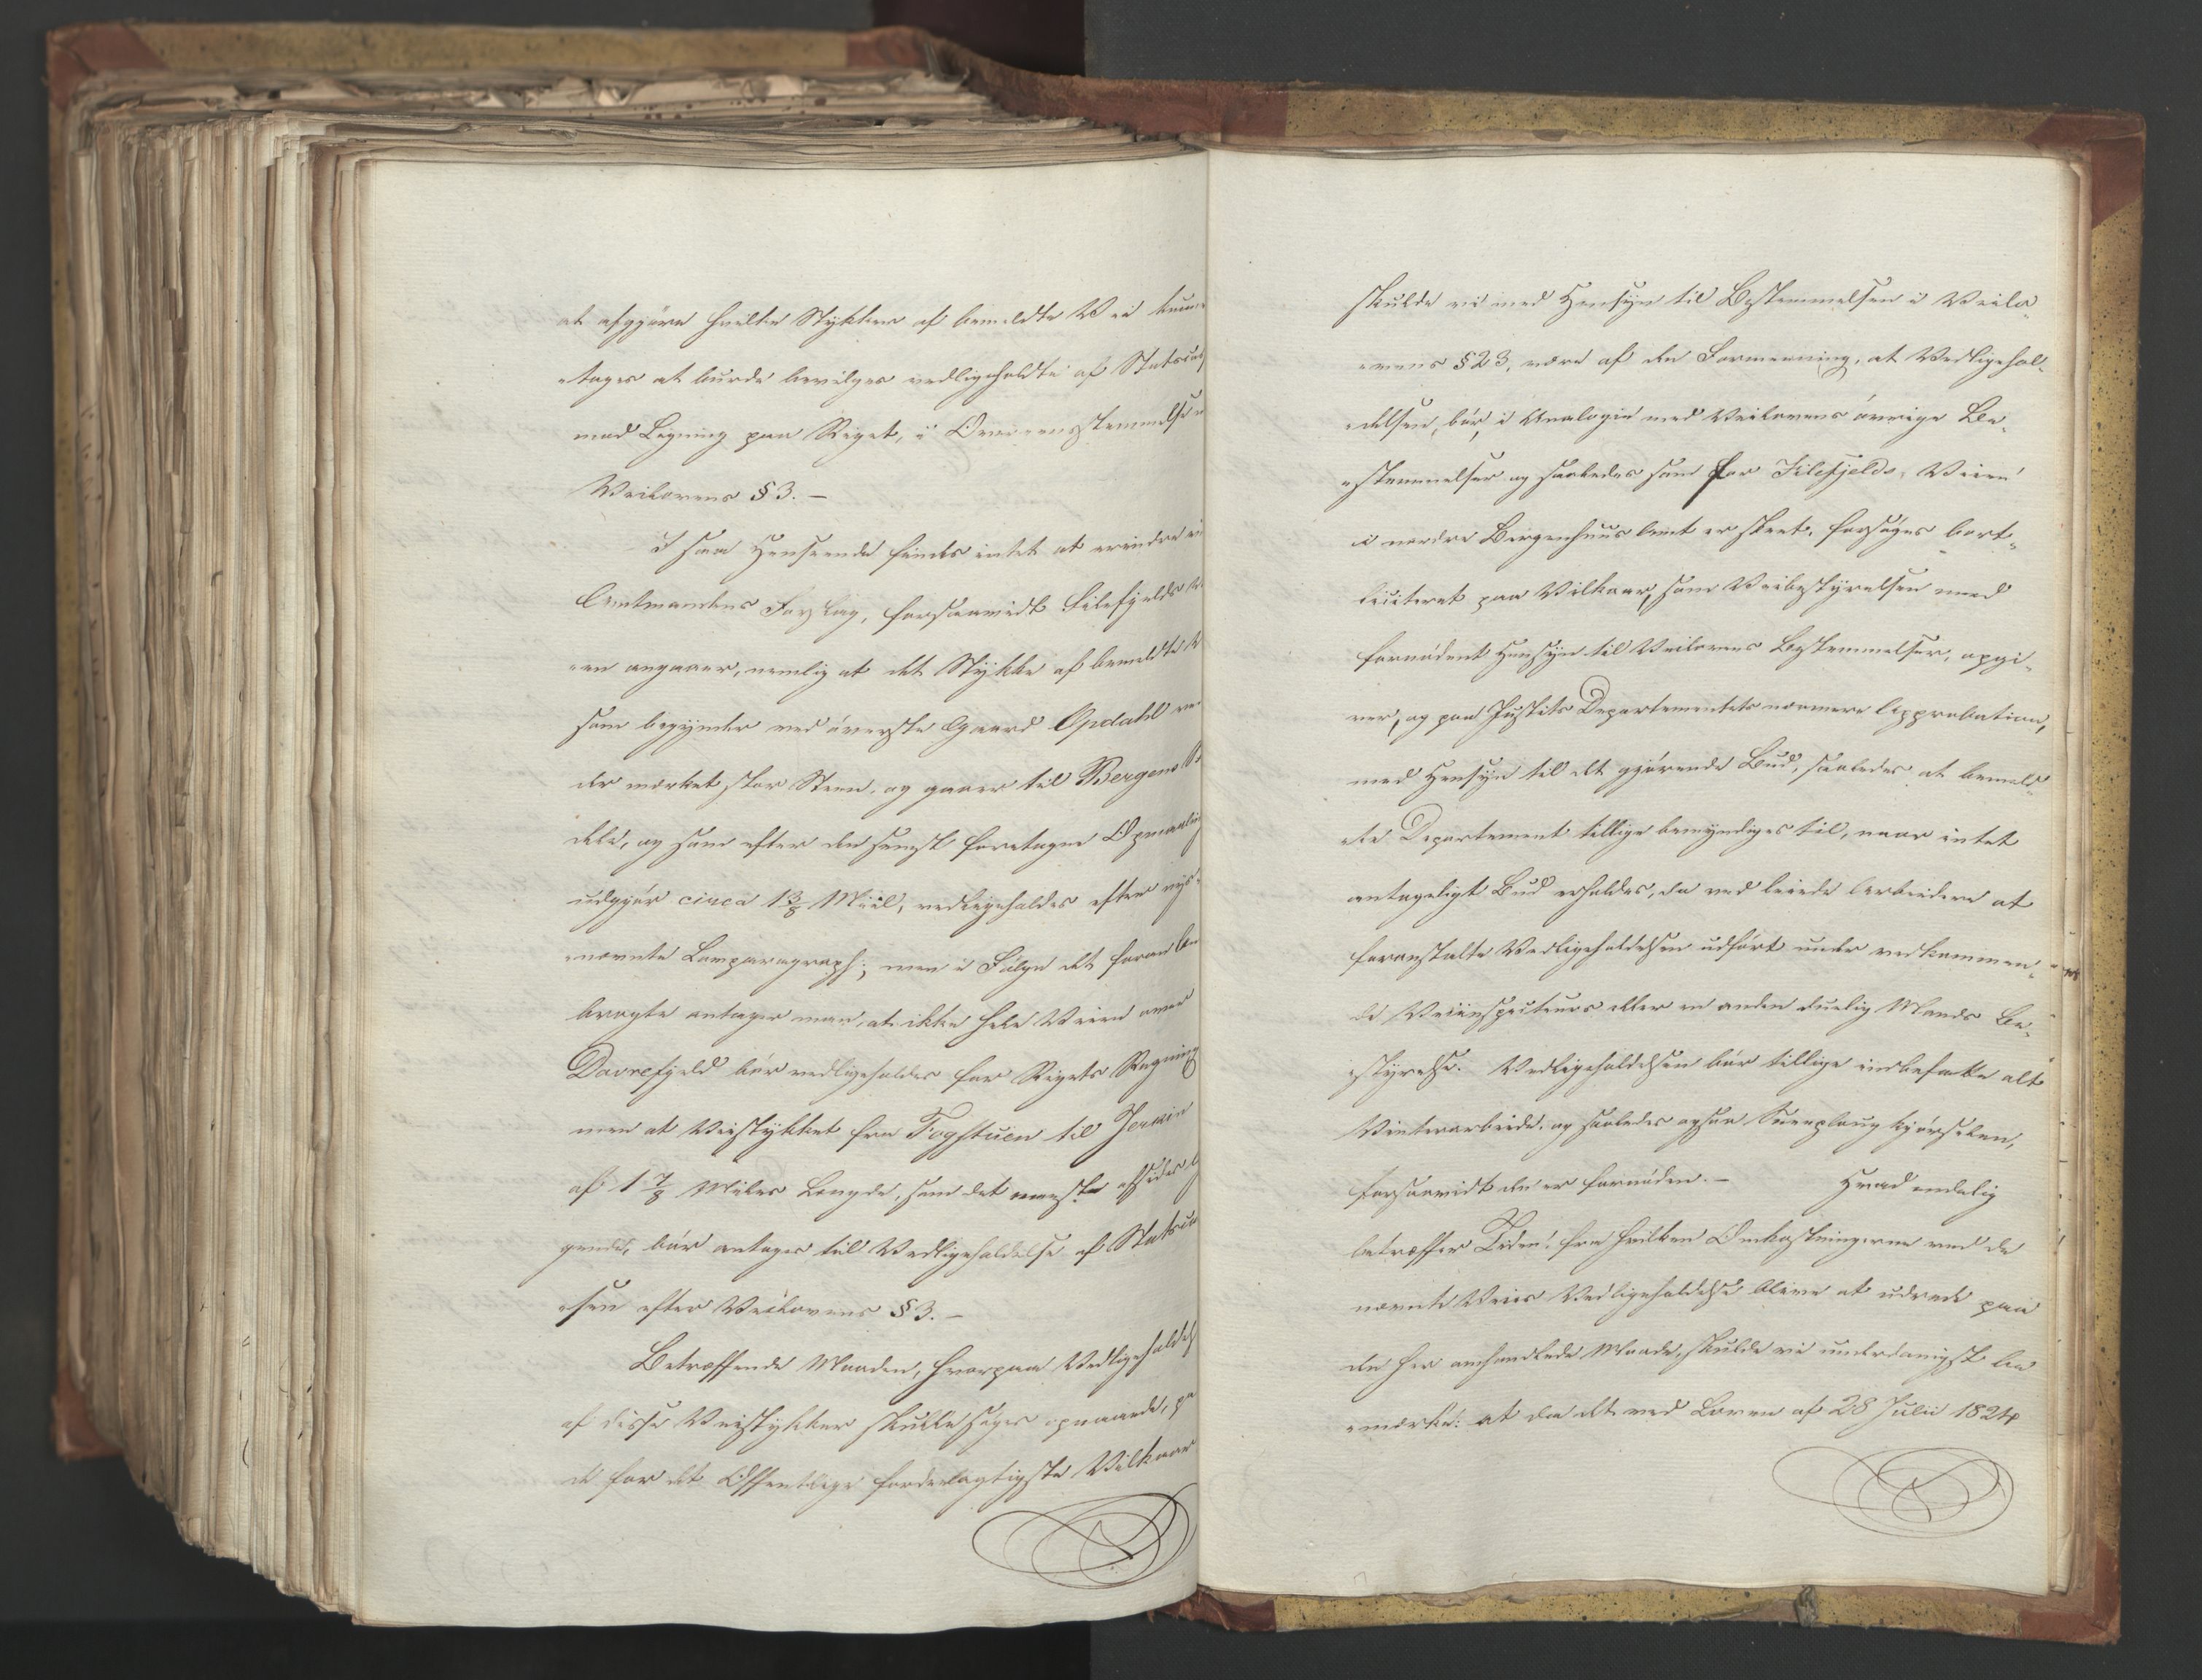 at afgjøre hvilke Stykker af bemeldte Vei kunne
„tages at burde bevilges vedligeholdte af Statscas
mod Ligning paa Riget, i Overensstemmelse
Veilovens § 3. —
I saa Henseende findes intet at erindre
Amtmandens Forslag, forsaavidt Filefjelds V
„en angaaer, nemlig at det Stykke af bemeldte V
som begynder ved øverste Gaard Opdahl
der mærket stor Steen, og gaaer til Bergens
dele, og som efter den senest foretagne Opmaaling
udgjør circa 1 3/8 Miil, vedligeholdes efter nys„
„nævnte Lovparagraph; men i Følge det foran
bragte antager man, at ikke hele Veien over
Dovrefjeld bør vedligeholdes for Rigets Regning
men at Veistykket fra Fogstuen til Jerkin
af 1 7/8 Miles Længde, som det meest afsides
gende, bør antages til Vedligeholdelse af Statscas
„sen efter Veilovens § 3. —
Betræffende Maaden, hvorpaa Vedligeholdel
af disse Veistykker skulde søges opnaaede, pa
de for det Offentlige fordeelagtigste Vilkaar
skulde vi med Hensyn til Bestemmelsen i Veilo„
„vens § 23, være af den Formeening, at Vedligehol„
„delsen, bør, i Analogie med Veilovens øvrige Be„
„stemmelser og saaledes som for Filefjelds Veien
i nordre Bergenhuus Amt er skeet, forsøges bort„
liciteret paa Vilkaar, som Veibestyrelsen med
fornødent Hensyn til Veilovens Bestemmelser, opgi„
ver, og paa Justits Departementets nærmere Approbation,
med Hensyn til det gjørende Bud, saaledes at bemeld„
„te Departement tillige bemyndiges til, naar intet
antageligt Bud erholdes, da ved leiede Arbeidere at
foranstalte Vedligeholdelsen udført under vedkommen„
de Veiinspecteurs eller en anden duelig Mands Be„
„styrelse. Vedligeholdelsen bør tillige indbefatte alt
Vinterarbeide, og saaledes ogsaa Sneeplougkjørselen,
forsaavidt den er fornøden. — Hvad endelig
betræffer Tiden, fra hvilken Omkostningerne ved de
nævnte Veies Vedligeholdelse blive at udrede paa
den her omhandlede Maade, skulde vi underdanigst be
„mærke: at da det ved Loven af 28 Julii 1824